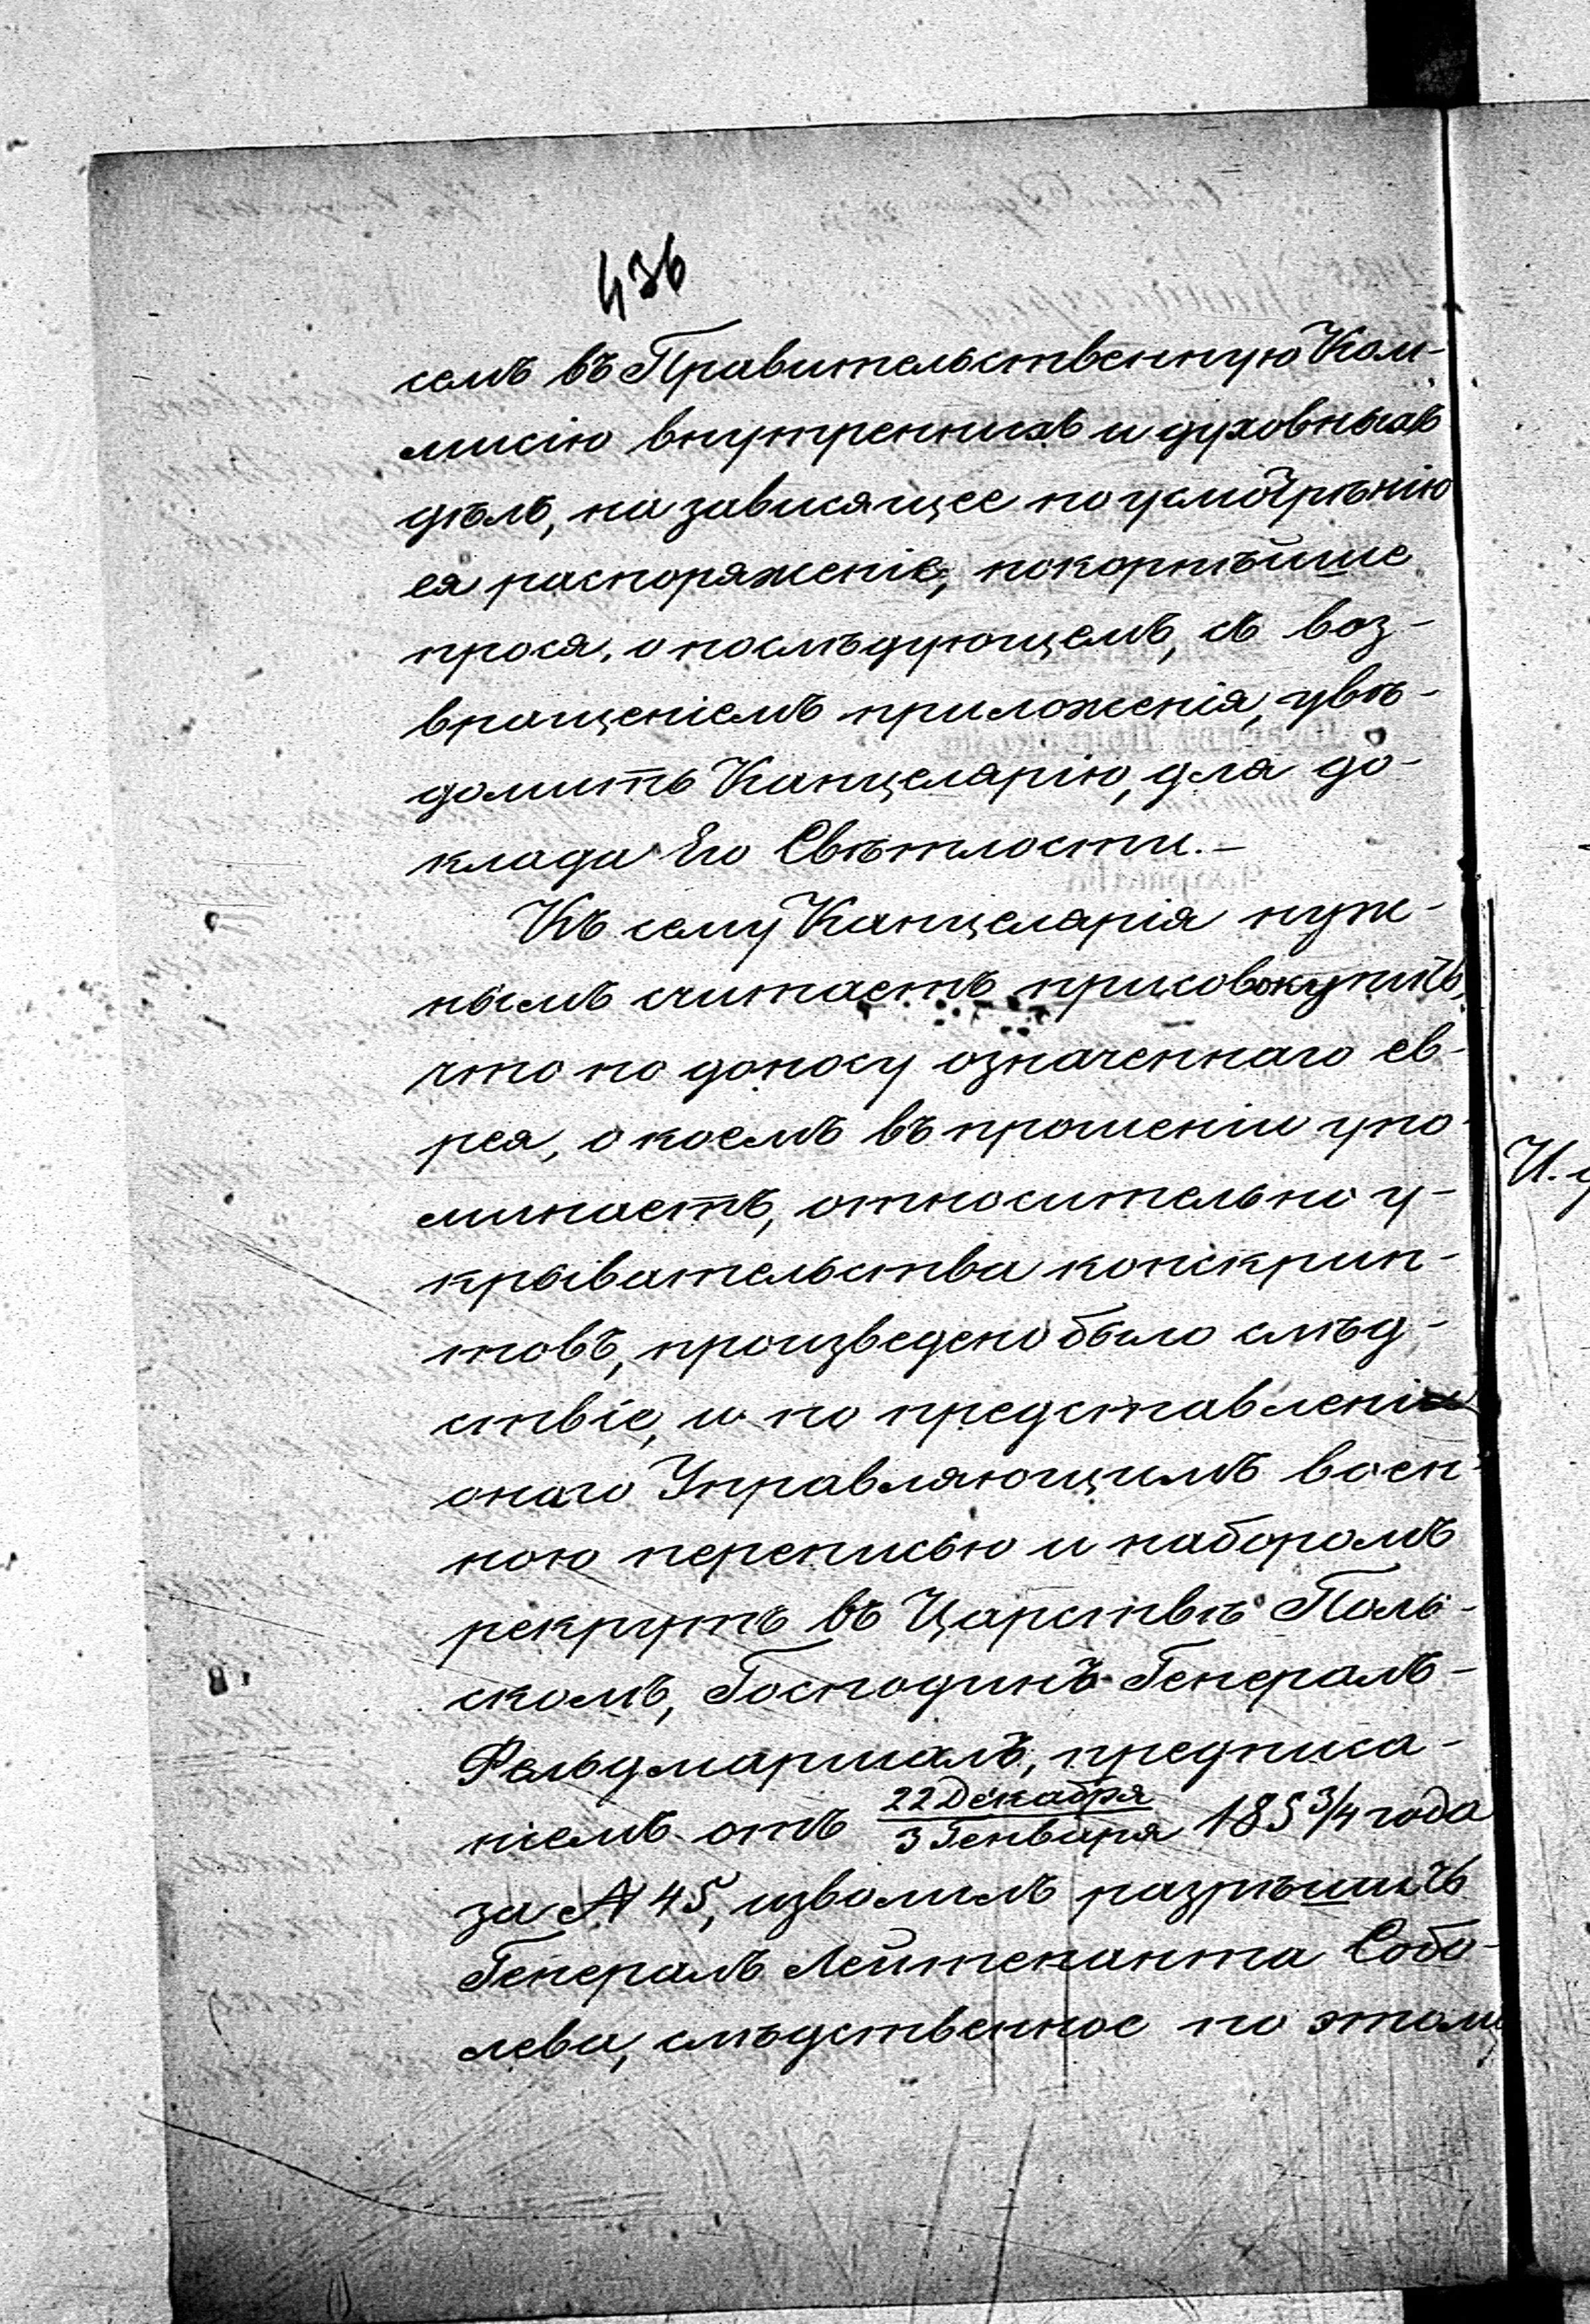 436
семъ въ Правительственную Ком-
мисію внутреннихъ и духовныхъ
дѣлъ, на зависящее по усмотрѣнію
ея распоряженіе, покорнѣйше
прося, о послѣдующемъ, съ воз-
вращеніемъ приложенія, увѣ-
домить Канцелярію, для до-
клада Его Свѣтлости.—
Къ сему Канцелярія нуж-
нымъ считаетъ присовокупить,
что по доносу означеннаго ев-
рея, о коемъ въ прошеніи упо-
минаетъ, относительно у-
крывательства конскрип-
товъ, произведено было слѣд-
ствіе, и по представленіи
онаго Управляющимъ воен-
ною переписью и наборомъ
рекрутъ въ Царствѣ Поль-
скомъ, Господинъ Генералъ-
Фельдмаршалъ, предписа-
ніемъ отъ 22 Декабря / 3 Генваря 185 3/4 года
за № 45, изволилъ разрѣшить
Генералъ Лейтенанта Собо-
лева, слѣдственное по этому
И.